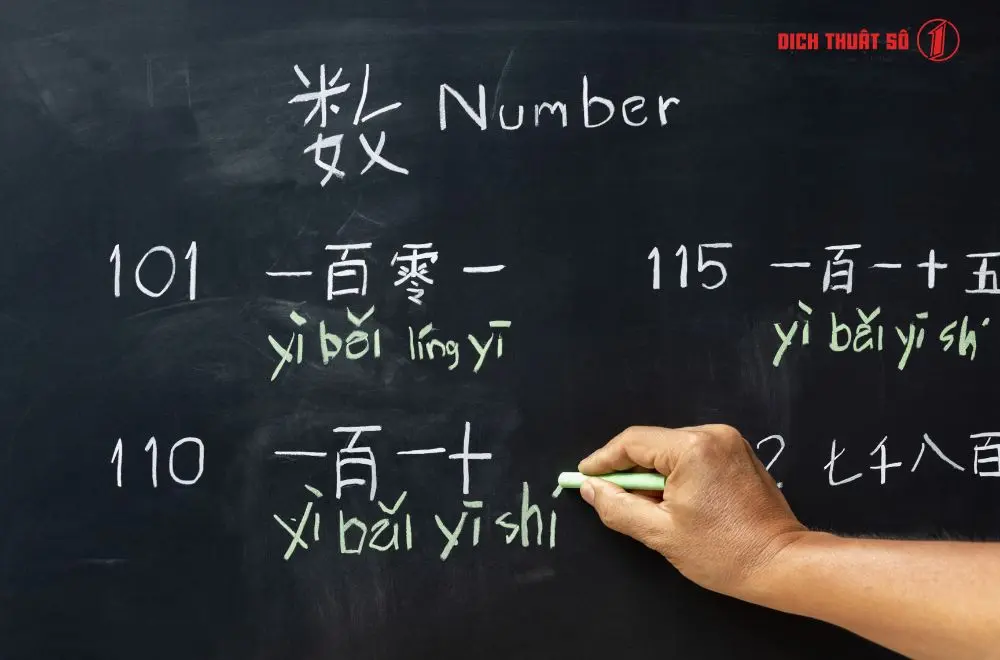 DỊCH THUẬT SỐ 1
数 Number
101 一百零一
yì bǎi líng yī
115 一百一十五
yì bǎi yī shí
110 一百一十
yì bǎi yī shí
2 七千八百